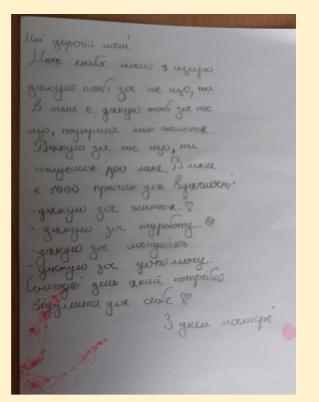 Моїй дорогій мамі
Мила люба мамо я щиро
дякую тобі за те що, ти
в мене є дякую тобі за те
що, подарила мені життя.
Дякую за те що, ти
піклуєшся про мене. В мене
є 1000 причин для вдячності:
· дякую за життя. ♡
· дякую за турботу. ☺
· дякую за
· дякую за допомогу.
Сьогодні день який потрібно
виділити для себе ♡
З днем матері